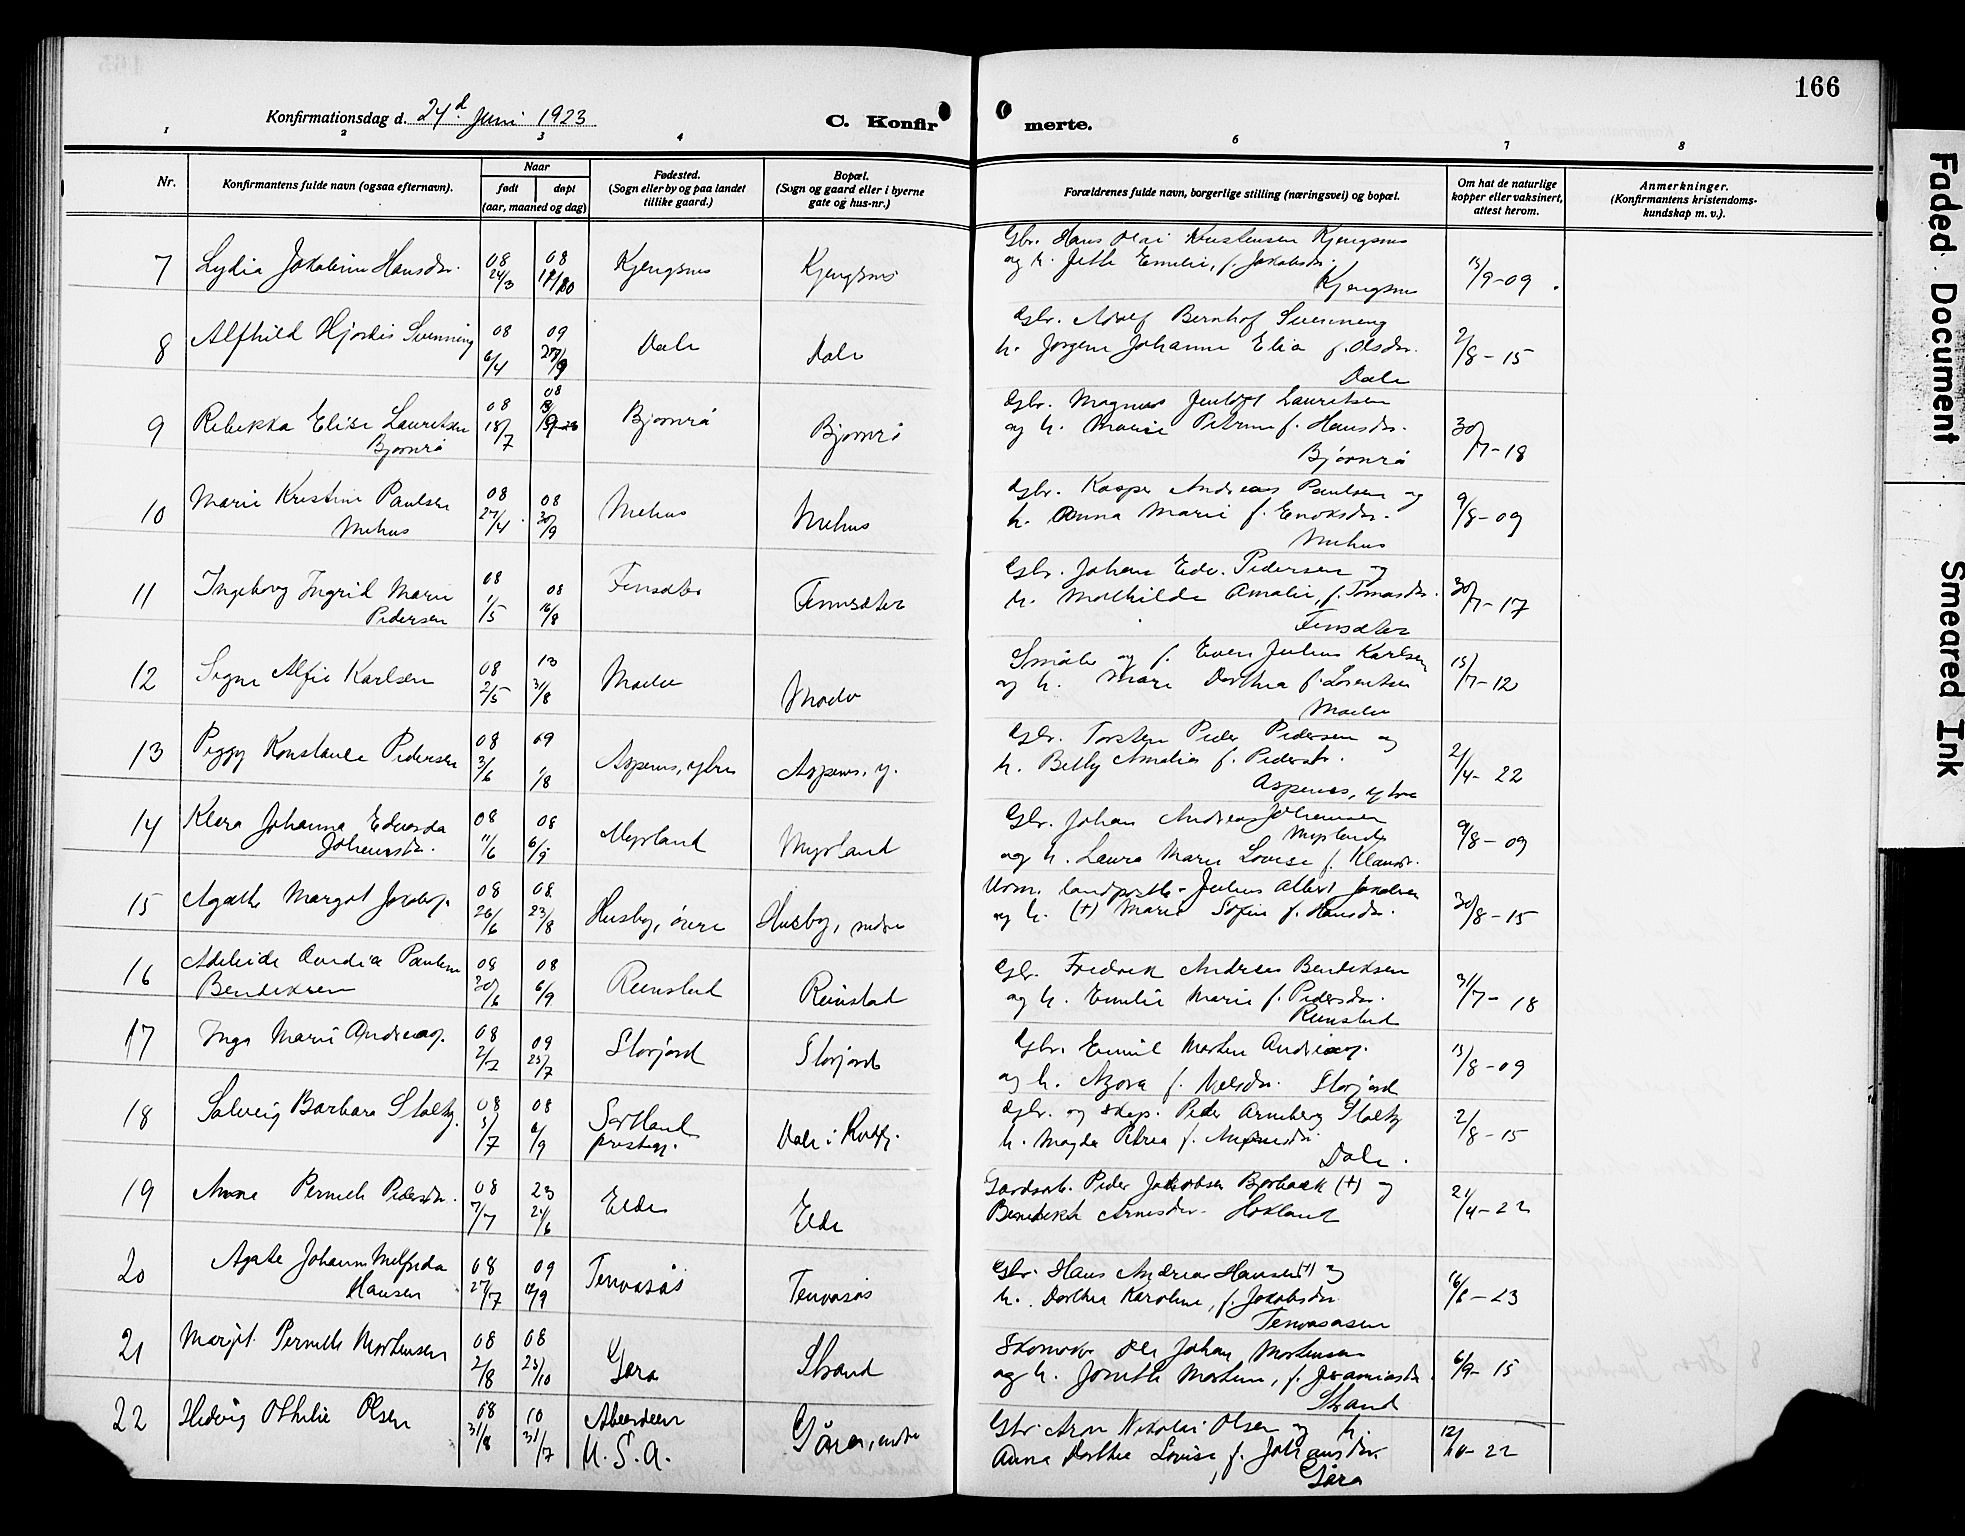 166
Konfirmationsdag d. 24d Juni 1923
C. Konfirmerte.
1 2 3 4 6 7 8
Nr.
Konfirmantens fulde navn (ogsaa efternavn).
Naar
født
døpt
(aar, maaned og dag)
Fødested.
(Sogn eller by og paa landet
tillike gaard.)
Bopæl.
(Sogn og gaard eller i byerne
gate og hus-nr.)
Forældrenes fulde navn, borgerlige stilling (næringsvei) og bopæl.
Om hat de naturlige
kopper eller vaksinert,
attest herom.
Anmerkninger.
(Konfirmantens kristendoms-
kundskap m. v.).
7 Lydia Hansdtr. 08 24/3 08 Kjengsnes Kjengsnes
Gbr. Hans Olai Kristensen Kjengsnes
og h. Jette Emilie, f. Jakobsdtr.
Kjengsnes 13/9-09
8 Alfhild Hjørdis Svenning 08 6/4 09 Dale Dale
Gbr. Adolf Bernhof Svenning
h. Jørgine Johanna Elia f. Olsdtr.
Dale 2/8-15
9 Rebekka Elise Lauritsen
Bjørnrå 08 18/7 08 Bjørnrå Bjørnrå
Gbr. Magnus Lauritsen
og h. Marie Petrine f. Hansdtr.
Bjørnrå 30/7-18
10 Marie Kristine Paulsen
Mehus 08 27/4 08 30/9 Mehus Mehus
Gbr. Kasper Andreas Paulsen og
h. Anna Marie f. Enoksdtr.
Mehus 9/8-09
11 Ingeborg Ingrid Marie
Pedersen 08 1/5 08 16/8 Finsæter Finnsæter
Gbr. Johan Edv. Pedersen og
h. Mathilde Amalie, f. Tomasdtr.
Finsæter 30/7-17
12 Signe Alfie Karlsen 08 2/5 13 31/8
og f. Even Julius Karlsen
og h. Mare Dorthea f. Lorentsen
13/7-12
13 Peggy Konstanse Pedersen 08 3/6 09 1/8 Aspenes, ytre Aspenes, y.
Gbr. Torsten Peder Pedersen og
h. Betty Amalia f. Pedersdtr.
Aspenes, ytre 2/4-22
14 Klara Johanna Edvarda
Johansdtr. 08 11/6 08 6/9 Myrland Myrland
Gbr. Johan Andreas Johansen
Myrland
og h. Laura Marie Lovise f. Klausdr. 9/8-09
15 Agathe Margot Jakobsen. 08 26/6 08. 23/8 Husby, øvre Husby, nedre
Julius Albert Jakobsen
og h. (+) Marie Sofie f. Hansdtr. 30/8-15
16 Adeleide Pauline
Bendiksen 08 30/6 08 6/9 Reinstad Reinstad
Gbr. Fredrik Andreas Bendiksen
og h. Emilie Marie f. Pedersdtr.
Reinstad 31/7-18
17 Inga Marie Andreas. 08 2/7 09 25/7 Storjord Storjord
Gbr. Emil Morten Andreas.
og h. Azora f. Nielsdtr. Storjord 13/8-09
18 Solveig Barbara Stoltz. 08 5/7 08 6/9 Sortland
prestegj. Dale i Kvæfj.
Gbr. og Peder Arneberg Stoltz
h. Magda Petrea f.
Dale. 2/8-15
19 Anna Pernelle Pedersdtr. 08 7/7 23 24/6 Elde Elde
Gaardsarb. Peder Jakobsen (+) og
Benedikte Arnesdtr. Hokland 21/4-22
20 Agate Johanne
Hansen 08 27/7 09 12/9 Tenvasås Tenvasås
Gbr. Hans Andreas Hansen (+) og
h. Dorthea Karoline, f. Jakobsdtr.
Tenvasåsen 16/6-23
21 Margit Pernelle Mortensen 08 2/8 08 25/10 Gåra Strand
Ole Johan Mortensen
og h. f. Jeramiasdtr.
Strand 6/9-15
22 Hedvig Othelie Olsen 08 31/8 10 31/7 Aberdeen
U.S.A. Gåra, indre
Gbr. Aron Nikolai Olsen og h.
Anna Dorthea Lovise, f. Johansdtr.
Gåra 12/10-22
Faded Document
Smeared Ink